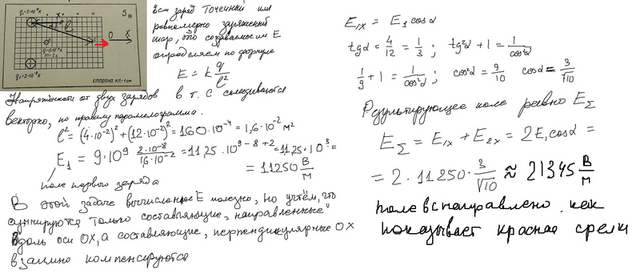 Если заряд точечный или
равномерно заряженный
шар, то создаваемое им E
определяем по формуле
E = k q/ℓ²
Напряженности от двух зарядов в т. C складываются
векторно, по правилу параллелограмма.
ℓ² = (4·10⁻²)² + (12·10⁻²)² = 160·10⁻⁴ = 1,6·10⁻² м²
E₁ = 9·10⁹ 2·10⁻⁸/1,6·10⁻² = 11,25·10⁹⁻⁸⁺² = 11,25·10³ =
= 11250 В/м
поле первого заряда
В этой задаче вычисление E полезно, но учтём, что
суммируются только составляющие, направленные
вдоль оси OX, а составляющие, перпендикулярные OX
взаимно компенсируются
E₁ₓ = E₁ cosα
tgα = 4/12 = 1/3 ; tg²α + 1 = 1/cos²α
1/9 + 1 = 1/cos²α ; cos²α = 9/10 cosα = 3/√10
Результирующее поле равно E_Σ
E_Σ = E₁ₓ + E₂ₓ = 2E₁cosα =
= 2·11250·3/√10 ≈ 21345 В/м
поле направлено, как
показывает красная стрелка
5 В
0 X
сторона кл-1см